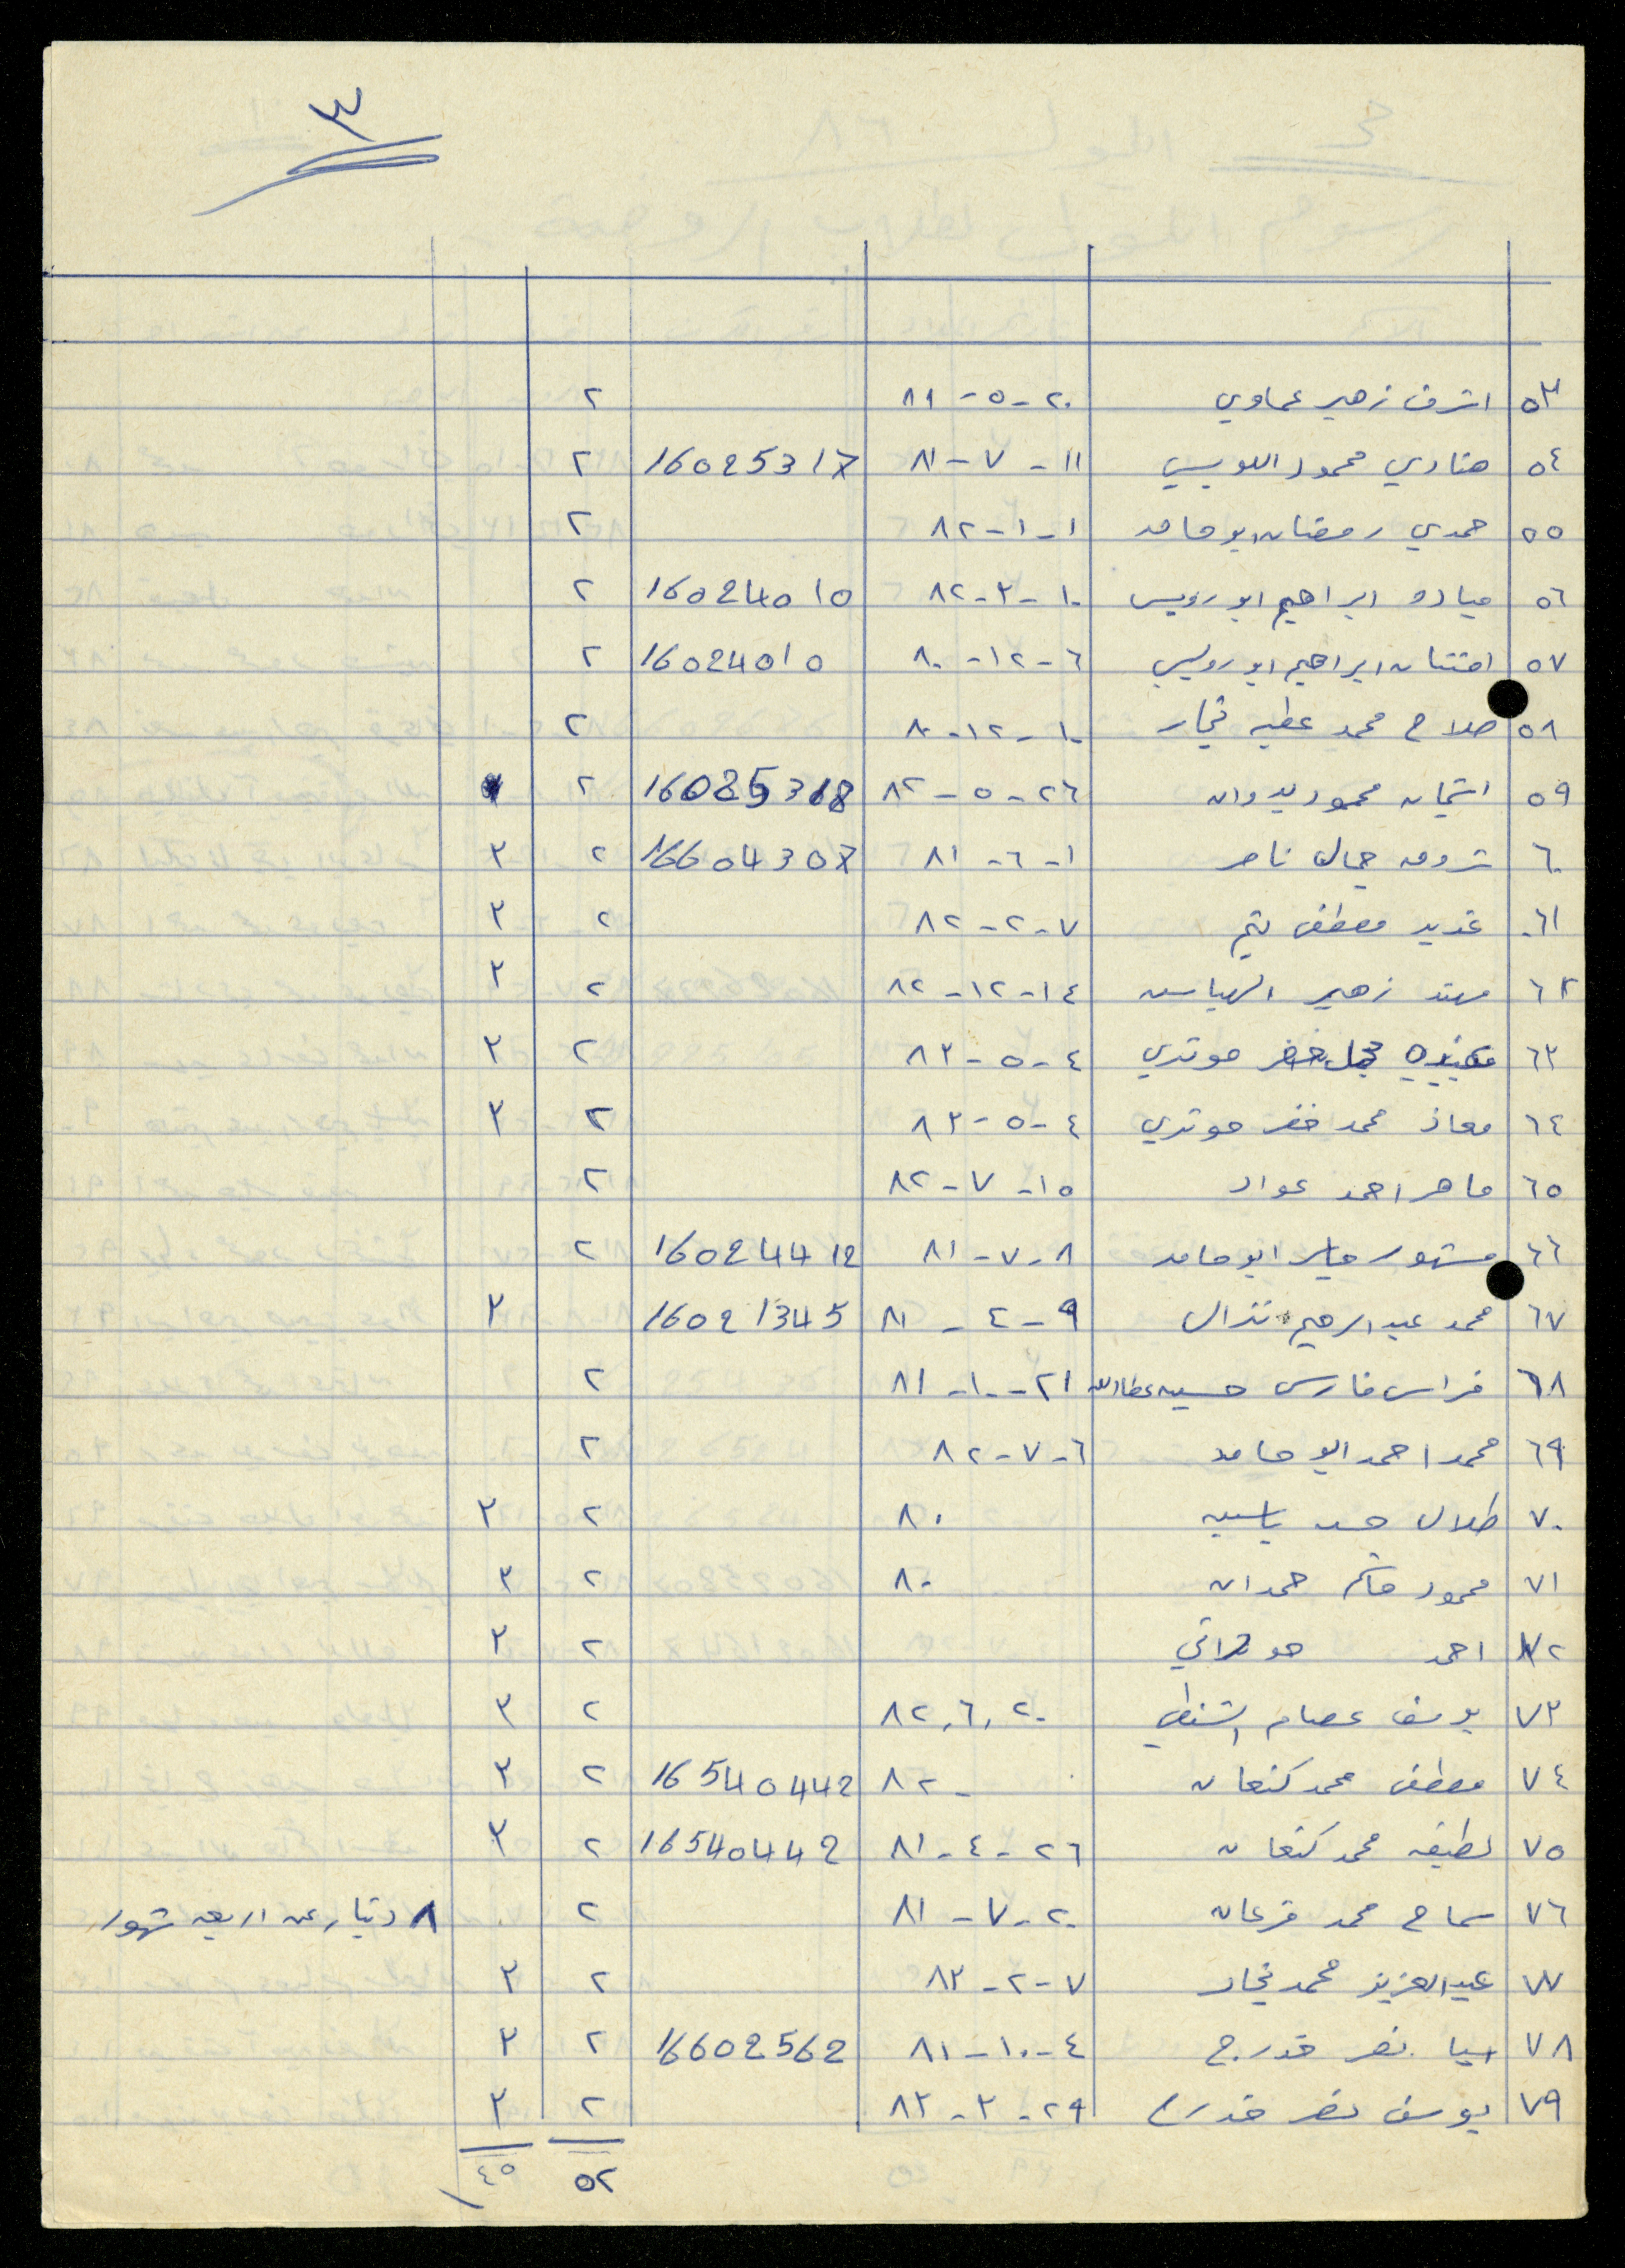 ٣
٥٣ اشرف زهير عماوي ٢٠-٥-٨١ ٢
٥٤ هنادي محمود اللويسي ١١-٧-٨١ 16025317 ٢
٥٥ حمدي رمضان ابو حامد ١-١-٨٢ ٢
٥٦ ميادة ابراهيم ابو رويس ١٠-٣-٨٢ 16024010 ٢
٥٧ افتنان ابراهيم ابو رويس ٦-١٢-٨٠ 16024010 ٢
٥٨ صلاح محمد عطيه نجار ١٠-١٢-٨٠ ٢
٥٩ محمود بدوان ٢٦-٥-٨٢ 16025318 ٢
٦٠ شروق جمال ناصر ١-٦-٨١ 16604307 ٢ ٣
٦١ غدير مصطفى ٧-٢-٨٢ ٢ ٣
٦٢ مهند زهير ١٤-١٢-٨٢ ٢ ٣
٦٣ خضر حوتري ٤-٥-٨٣ ٢ ٣
٦٤ معاذ محمد خضر حوتري ٤-٥-٨٣ ٢ ٣
٦٥ ماهر احمد عواد ١٥-٧-٨٢ ٢
٦٦ مشهور جابر ابو حامد ٨-٧-٨١ 16024412 ٢
٦٧ محمد عبد الرحيم نزال ٩-٤-٨١ 16021345 ٣
٦٨ فراس فارس حسين عطاالله ٢١-١٠-٨١ ٢
٦٩ محمد احمد ابو حامد ٦-٧-٨٢ ٢
٧٠ طلال حسن ياسين ٨٠ ٢ ٣
٧١ محمود حاتم حمدان ٨٠ ٢ ٣
٧٢ احمد حوراني ٢ ٣
٧٣ يوسف عصام الشنطي ٢٠,٦,٨٢ ٢ ٣
٧٤ مصطفى محمد كنعان - ٨٢ 16540442 ٢ ٣
٧٥ لطيفه محمد كنعان ٢٦-٤-٨١ 16540442 ٢ ٣
٧٦ سماح محمد قرعان ٢٠-٧-٨١ ٢ ٨ دينار عن اربعه شهور
٧٧ عبدالعزيز محمد نجار ٧-٢-٨٣ ٢ ٣
٧٨ اسيا نصر خدرج ٤-١٠-٨١ 16602562 ٢ ٣
٧٩ يوسف نصر خدرج ٢٩-٣-٨٣ ٢ ٣
٥٢ ٤٥